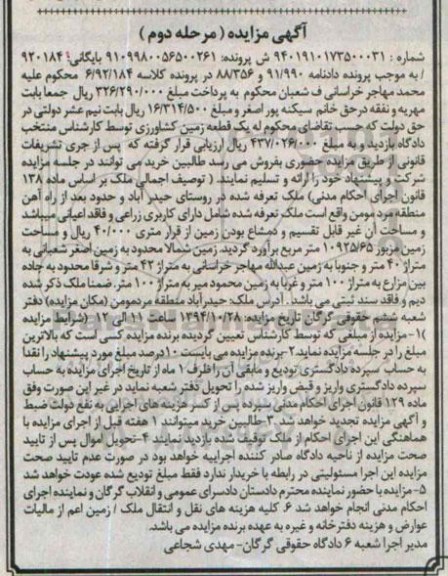 آگهی مزایده ( مرحله دوم )
شماره : ۹۴۰۱۹۱۰۱۷۳۵۰۰۰۳۱ ش پرونده: ۹۱۰۹۹۸۰۰۵۶۵۰۰۲۶۱ بایگانی: ۹۲۰۱۸۴
/ به موجب پرونده دادنامه ۹۱/۹۹۰ و ۸۸/۳۵۶ در پرونده کلاسه ۶/۹۲/۱۸۴ محکوم علیه
محمد مهاجر خراسانی ف شعبان محکوم به پرداخت مبلغ ۳۲۶/۲۹۰/۰۰۰ ریال جمعا بابت
مهریه و نفقه در حق خانم سکینه پور اصغر و مبلغ ۱۶/۳۱۴/۵۰۰ ریال بابت نیم عشر دولتی در
حق دولت که حسب تقاضای محکوم له یک قطعه زمین کشاورزی توسط کارشناس منتخب
دادگاه بازدید و به مبلغ ۴۳۷/۰۲۶/۰۰۰ ریال ارزیابی قرار گرفته که پس از جری تشریفات
قانونی از طریق مزایده حضوری بفروش می رسد طالبین خرید می توانند در جلسه مزایده
شرکت و پیشنهاد خود را ارائه و تسلیم نمایند. ( توصیف اجمالی ملک بر اساس ماده ۱۳۸
قانون اجرای احکام مدنی) ملک تعرفه شده در روستای حیدر آباد و حدود بعد از راه آهن
منطقه مرد مومن واقع است ملک تعرفه شده شامل دارای کاربری زراعی و فاقد اعیانی میباشد
و مساحت آن غیر قابل تقسیم و دمشاع بودن زمین از قرار متری ۴۰/۰۰۰ ریال و مساحت
زمین مزبور ۱۰۹۲۵/۶۵ متر مربع برآورد گردید. زمین شمالا محدود به زمین اصغر شعبانی به
متراژ ۴۰ متر و جنوبا به زمین عبدالله مهاجر خراسانی به متراژ ۴۲ متر و شرقا محدود به جاده
بین مزارع به متراژ ۱۰۰ متر و غربا به زمین محمود میر به متراژ ۱۰۰ متر. ضمنا ملک ذکر شده
دیم و فاقد سند ثبتی می باشد. آدرس ملک: حیدرآباد منطقه مردمومن (مکان مزایده) دفتر
شعبه ششم حقوقی گرگان تاریخ مزایده: ۱۳۹۴/۱۰/۲۸ ساعت ۱۱ الی ۱۲ (شرایط مزایده
)۱-مزایده از مبلغی که توسط کارشناس تعیین گردیده برنده مزایده کسی است که بالاترین
مبلغ را در جلسه مزایده نماید.۲-برنده مزایده می بایست ۱۰درصد مبلغ مورد پیشنهاد را نقدا
به حساب سپرده دادگستری تودیع و مابقی آن را ظرف ۱ ماه از تاریخ اجرای مزایده به حساب
سپرده دادگستری واریز و قبض واریز شده را تحویل دفتر شعبه نماید در غیر این صورت وفق
ماده ۱۲۹ قانون اجرای احکام مدنی سپرده پس از کسر هزینه های اجرایی به نفع دولت ضبط
و آگهی مزایده تجدید خواهد شد. ۳-طالبین خرید میتوانند ۱ هفته قبل از اجرای مزایده با
هماهنگی این اجرای احکام از ملک توقیف شده بازدید نمایند ۴-تحویل اموال پس از تایید
صحت مزایده از ناحیه دادگاه صادر کننده اجراییه خواهد بود در صورت عدم تایید صحت
مزایده این اجرا مسئولیتی در رابطه با خریدار ندارد فقط مبلغ تودیع شده عودت خواهد شد
۵-مزایده با حضور نماینده محترم دادستان دادسرای عمومی و انقلاب گرگان و نماینده اجرای
احکام مدنی انجام خواهد شد ۶. کلیه هزینه های نقل و انتقال ملک / زمین اعم از مالیات
عوارض و هزینه دفترخانه و غیره به عهده برنده مزایده می باشد.
مدیر اجرا شعبه ۶ دادگاه حقوقی گرگان- مهدی شجاعی